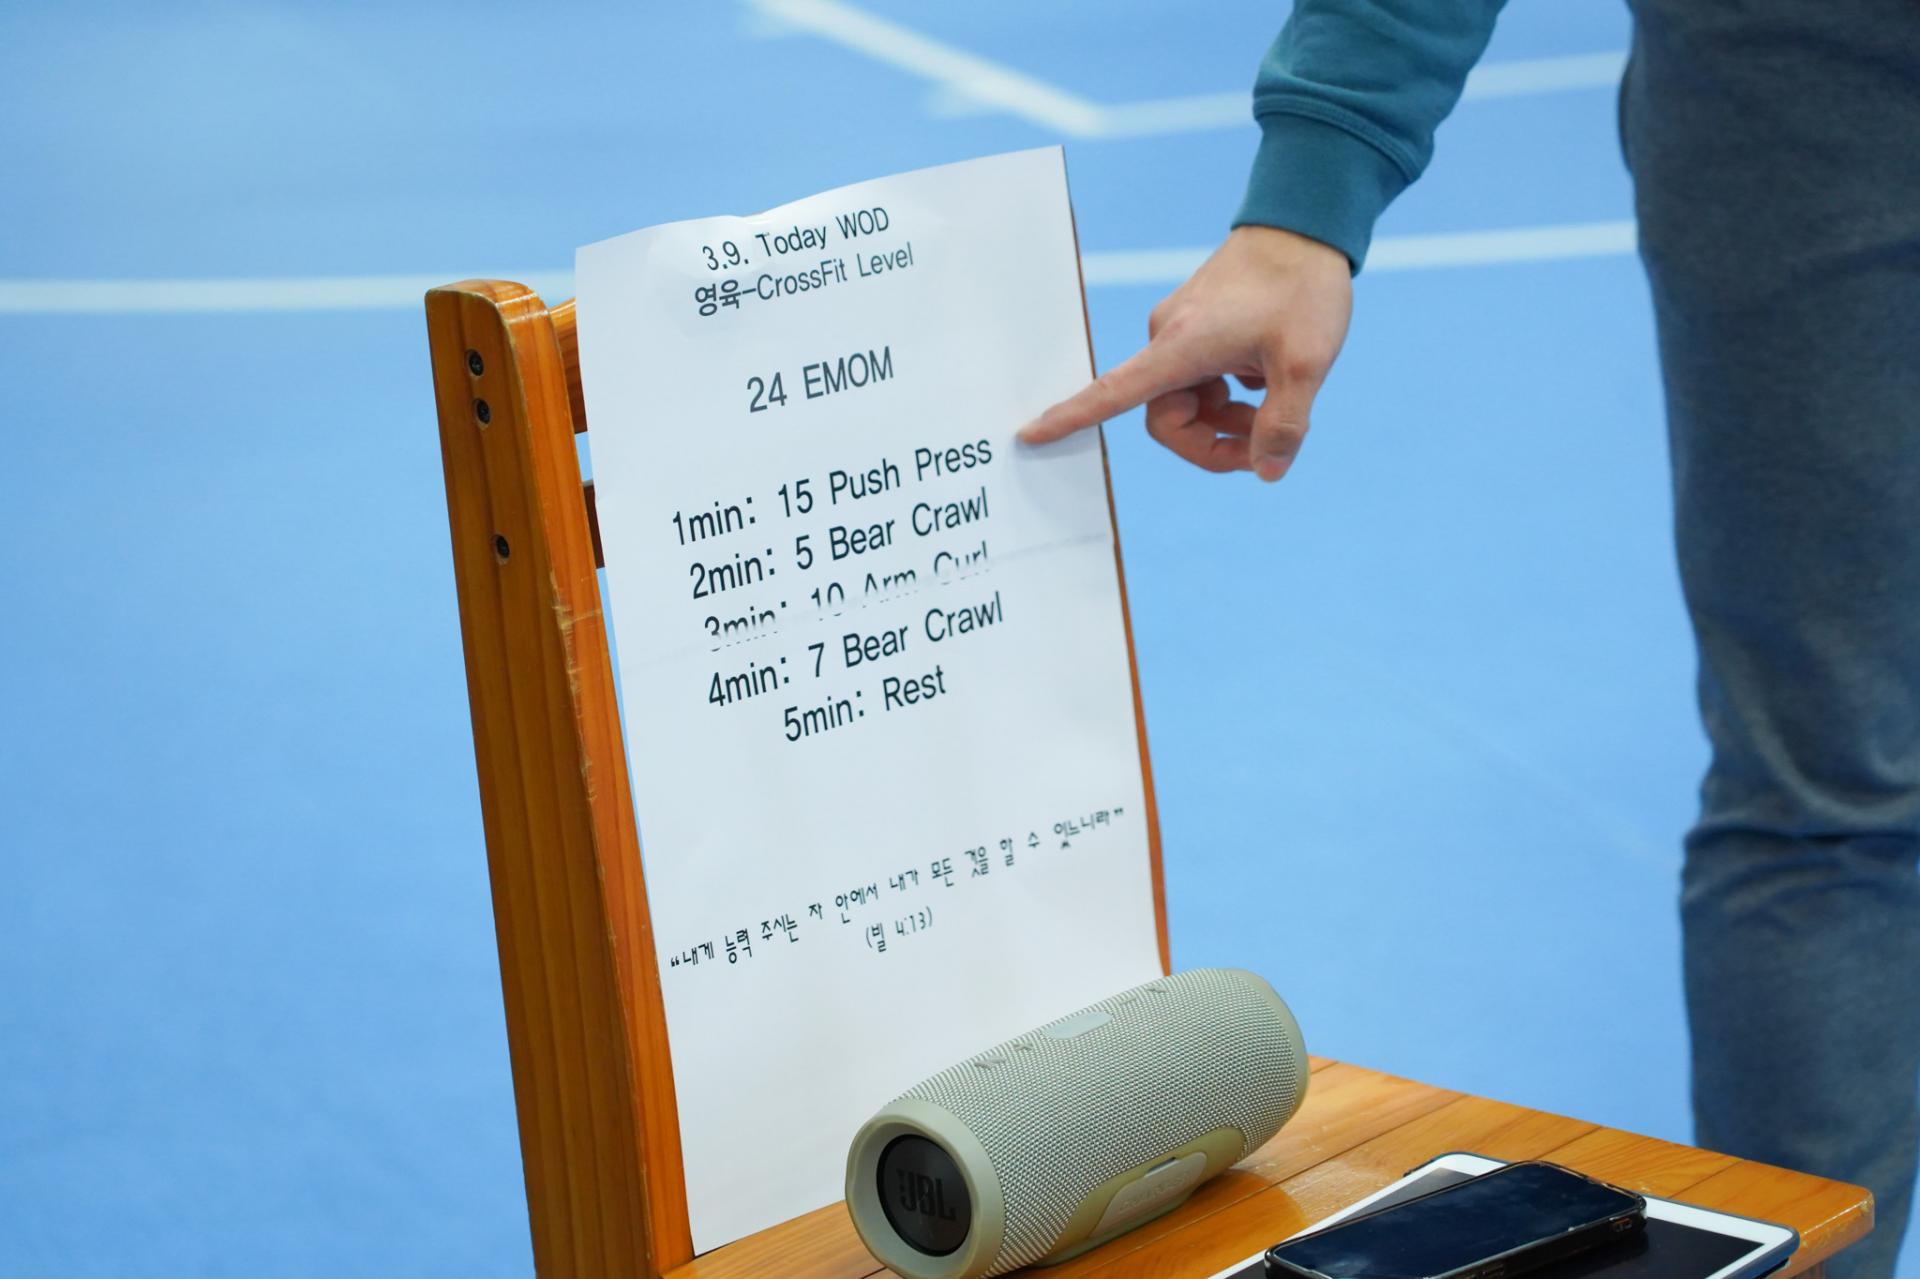 3.9. Today WOD
영육-CrossFit Level
24 EMOM
1min: 15 Push Press
2min: 5 Bear Crawl
3min: 10 Arm Curl
4min: 7 Bear Crawl
5min: Rest
“내게 능력 주시는 자 안에서 내가 모든 것을 할 수 있느니라”
(빌 4:13)
JBL